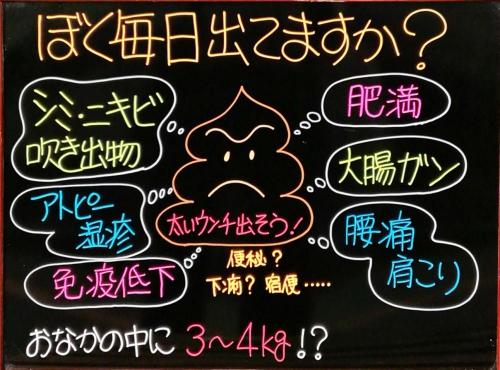 ぼく毎日出てますか?
シミ・ニキビ
吹き出物
肥満
大腸ガン
アトピー
湿疹
太いウンチ出そう!
腰痛
肩こり
免疫低下
便秘?
下痢? 宿便……
おなかの中に 3〜4kg!?